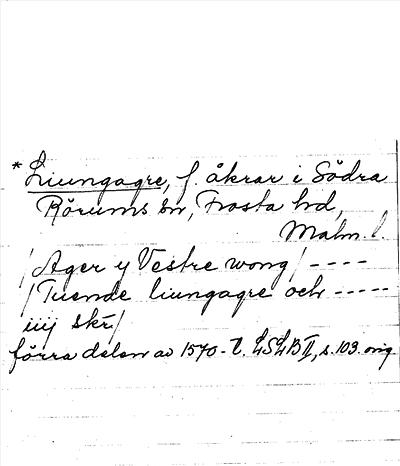 * Liungagre, f. åkrar i Södra
Rörums sn, Frosta hd,
Malm. l.
/Ager y Vestre wong/ ----
/Tuende liungagre och -----
iiij skr/
förra delen av 1570-t. LSLB II, s. 103. orig.